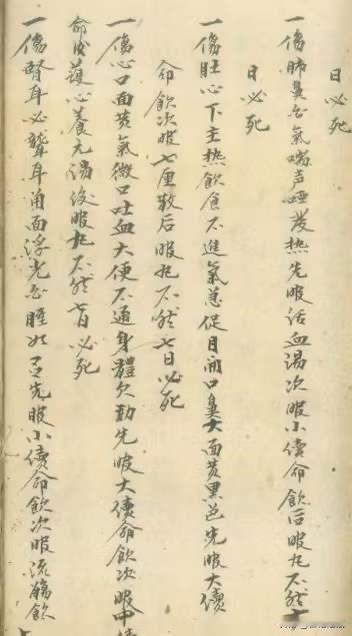 日必死
一傷肺鼻白氣喘声啞發热先服活血湯次服小續命飲后服丸不然十
日必死
一傷肚心下主热飲食不進氣急促目開口鼻大面黄黑色先服大續
命飲次服七厘散后服丸不然七日必死
一傷心口面黄氣微口吐血大便不通身體欠動先服大續命飲次服中續
命湯護心養元湯後服丸不然七日必死
一傷腎耳必聾耳角面浮光色睡如弓先服小續命飲次服流傷飲